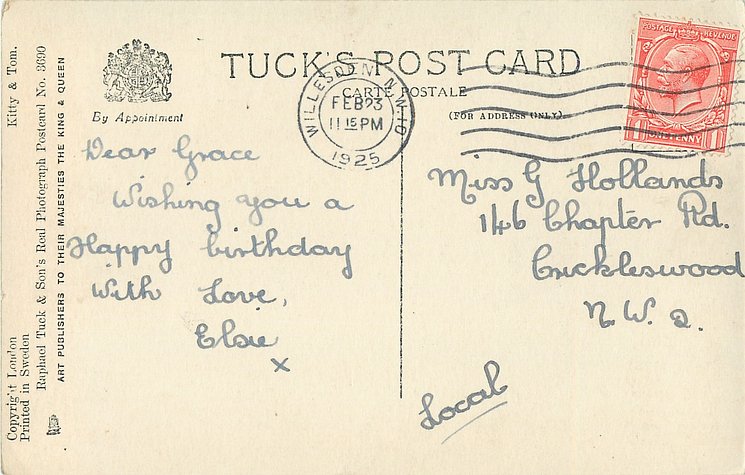 TUCK'S POST CARD
CARTE POSTALE
(FOR ADDRESS ONLY).
By Appointment
WILLESDEN N.W.10
FEB 23
11 15 PM
1925
POSTAGE REVENUE
ONE PENNY
Dear Grace
Wishing you a
Happy birthday
With Love,
Elsie
x
Miss G Hollands
146 Chapter Rd.
Crickleswood
N.W. 2.
Local
Kitty & Tom.
Raphael Tuck & Son's Real Photograph Postcard No. 3600
ART PUBLISHERS TO THEIR MAJESTIES THE KING & QUEEN
Copyright London
Printed in Sweden